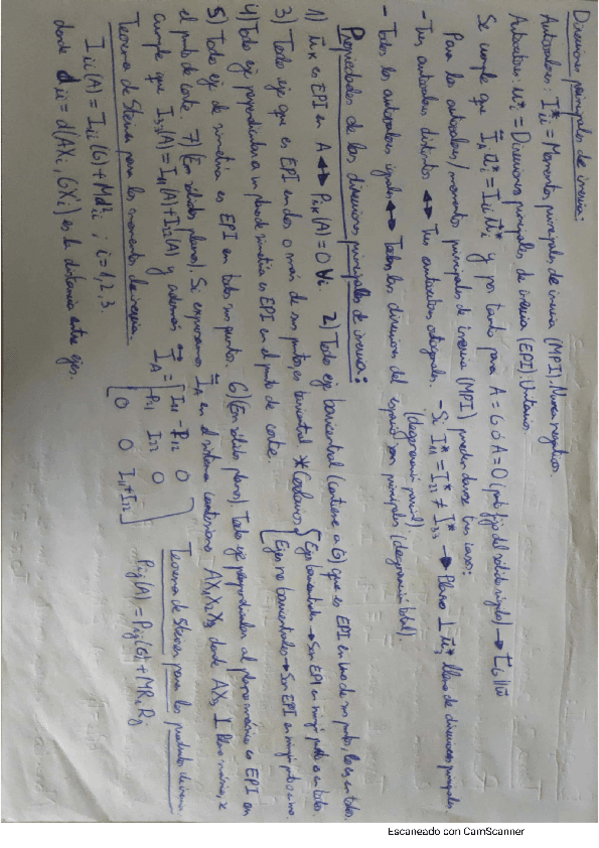 Direcciones principales de inercia:
Autovalores: I*ii = Momentos principales de inercia (MPI). Nunca negativos.
Autovectores: u*i = Direcciones principales de inercia (EPI). Unitario.
Se cumple que I_A u*i = Iii u*i y por tanto para A = G ó A = O (punto fijo del sólido rígido) → L_G || ω
Para los autovalores/momentos principales de inercia (MPI) pueden darse tres casos:
- Tres autovalores distintos ↔ Tres autovectores ortogonales. - Si I*11 = I*22 ≠ I*33 → Plano ⊥ u*3 lleno de direcciones principales
(degeneración parcial)
- Todos los autovalores iguales ↔ Todas las direcciones del espacio son principales (degeneración total).
Propiedades de las direcciones principales de inercia:
1) u_k es EPI en A ↔ P_ik(A) = 0 ∀i. 2) Todo eje baricentral (contiene a G) que es EPI en uno de sus puntos, lo es en todos.
3) Todo eje que es EPI en dos o más de sus puntos, es baricentral * Corolarios: { Ejes baricentrales → Son EPI en ningún punto o en todos.
Ejes no baricentrales → Son EPI en ningún punto o en uno.
4) Todo eje perpendicular a un plano de simetría es EPI en el punto de corte.
5) Todo eje de simetría es EPI en todos sus puntos. 6) (En sólido plano). Todo eje perpendicular al plano másico es EPI en
el punto de corte. 7) (En sólidos planos). Si expresamos I_A en el sistema cartesiano AX1X2X3 donde AX3 ⊥ plano másico, se
cumple que I33(A) = I11(A) + I22(A) y además I_A = [ I11 -P12 0
-P21 I22 0
0 0 I11+I22 ]
Teorema de Steiner para los momentos de inercia: Teorema de Steiner para los productos de inercia
Iii(A) = Iii(G) + Md²ii ; i = 1, 2, 3 Pij(A) = Pij(G) + MRiRj
donde dii = d(AXi, GXi) es la distancia entre ejes.
Escaneado con CamScanner